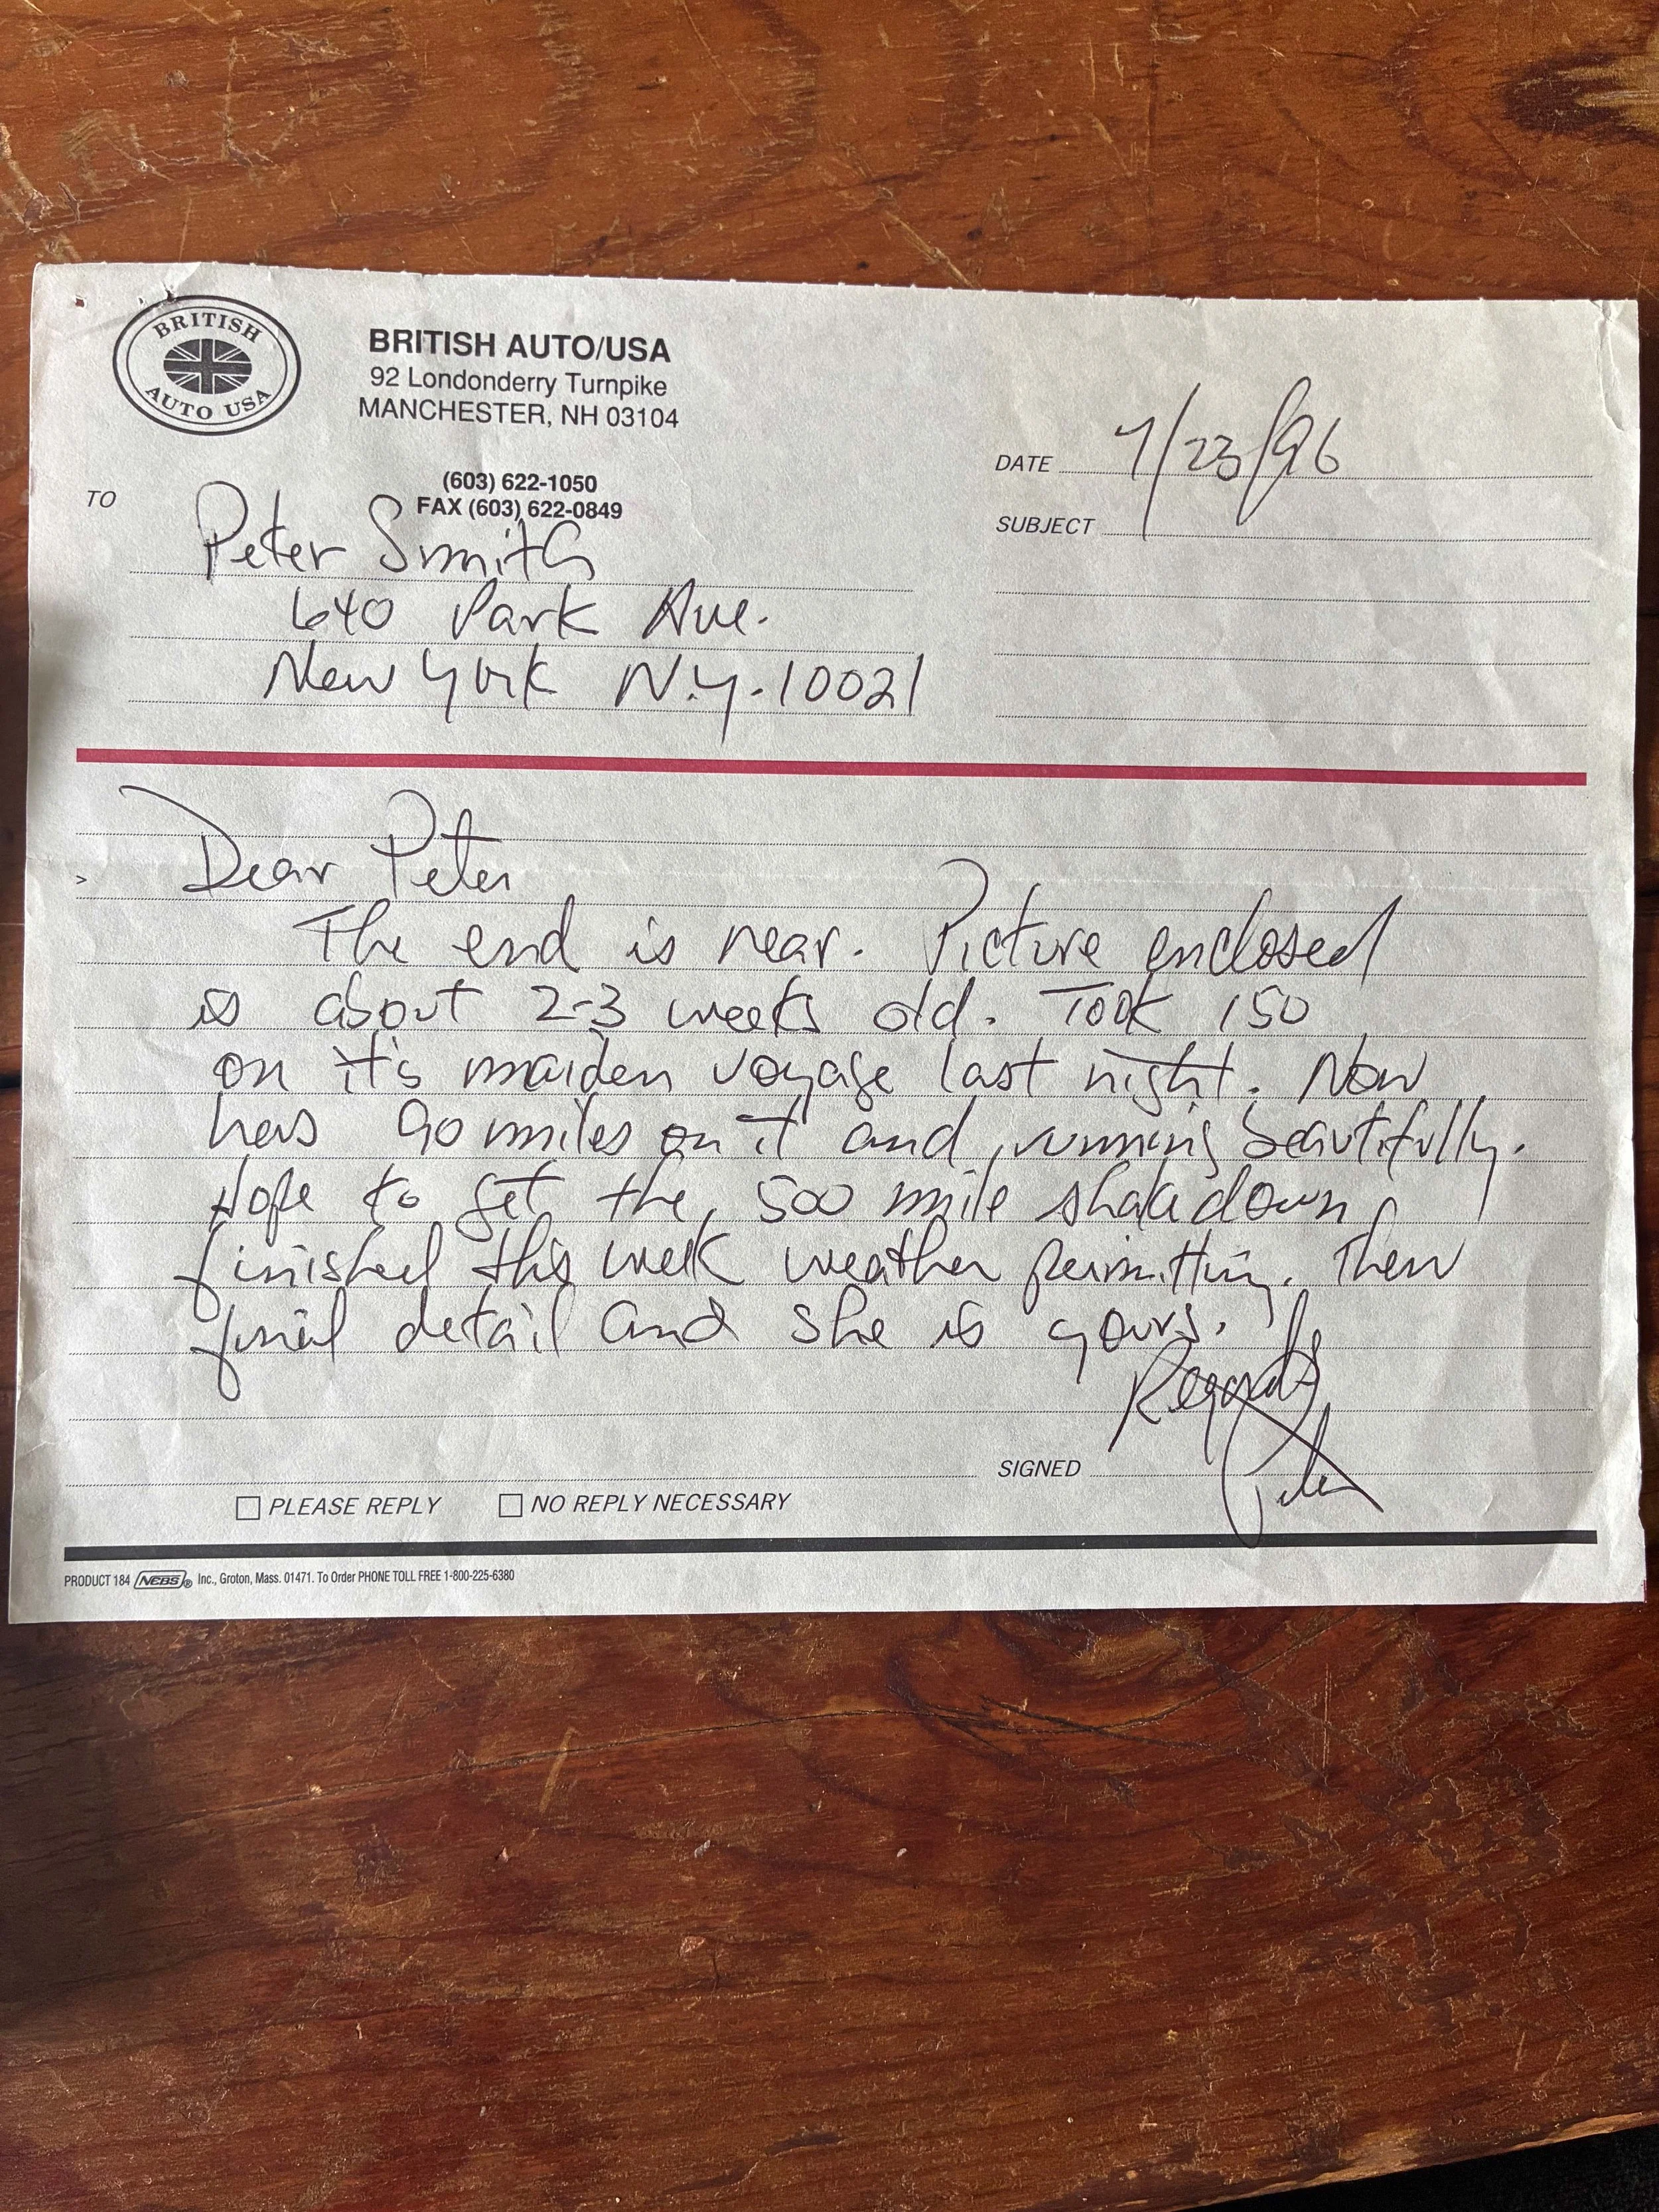 BRITISH
AUTO USA
BRITISH AUTO/USA
92 Londonderry Turnpike
MANCHESTER, NH 03104
(603) 622-1050
FAX (603) 622-0849
DATE 7/23/96
SUBJECT
TO
Peter Smith
640 Park Ave.
New York N.Y. 10021
Dear Peter
The end is near. Picture enclosed
is about 2-3 weeks old. Took 150
on it's maiden voyage last night. Now
has 90 miles on it and running beautifully.
Hope to get the 500 mile shakedown
finished this week weather permitting. Then
final detail and she is yours.
Regards
SIGNED
PLEASE REPLY NO REPLY NECESSARY
PRODUCT 184 NEBS ® Inc., Groton, Mass. 01471. To Order PHONE TOLL FREE 1-800-225-6380